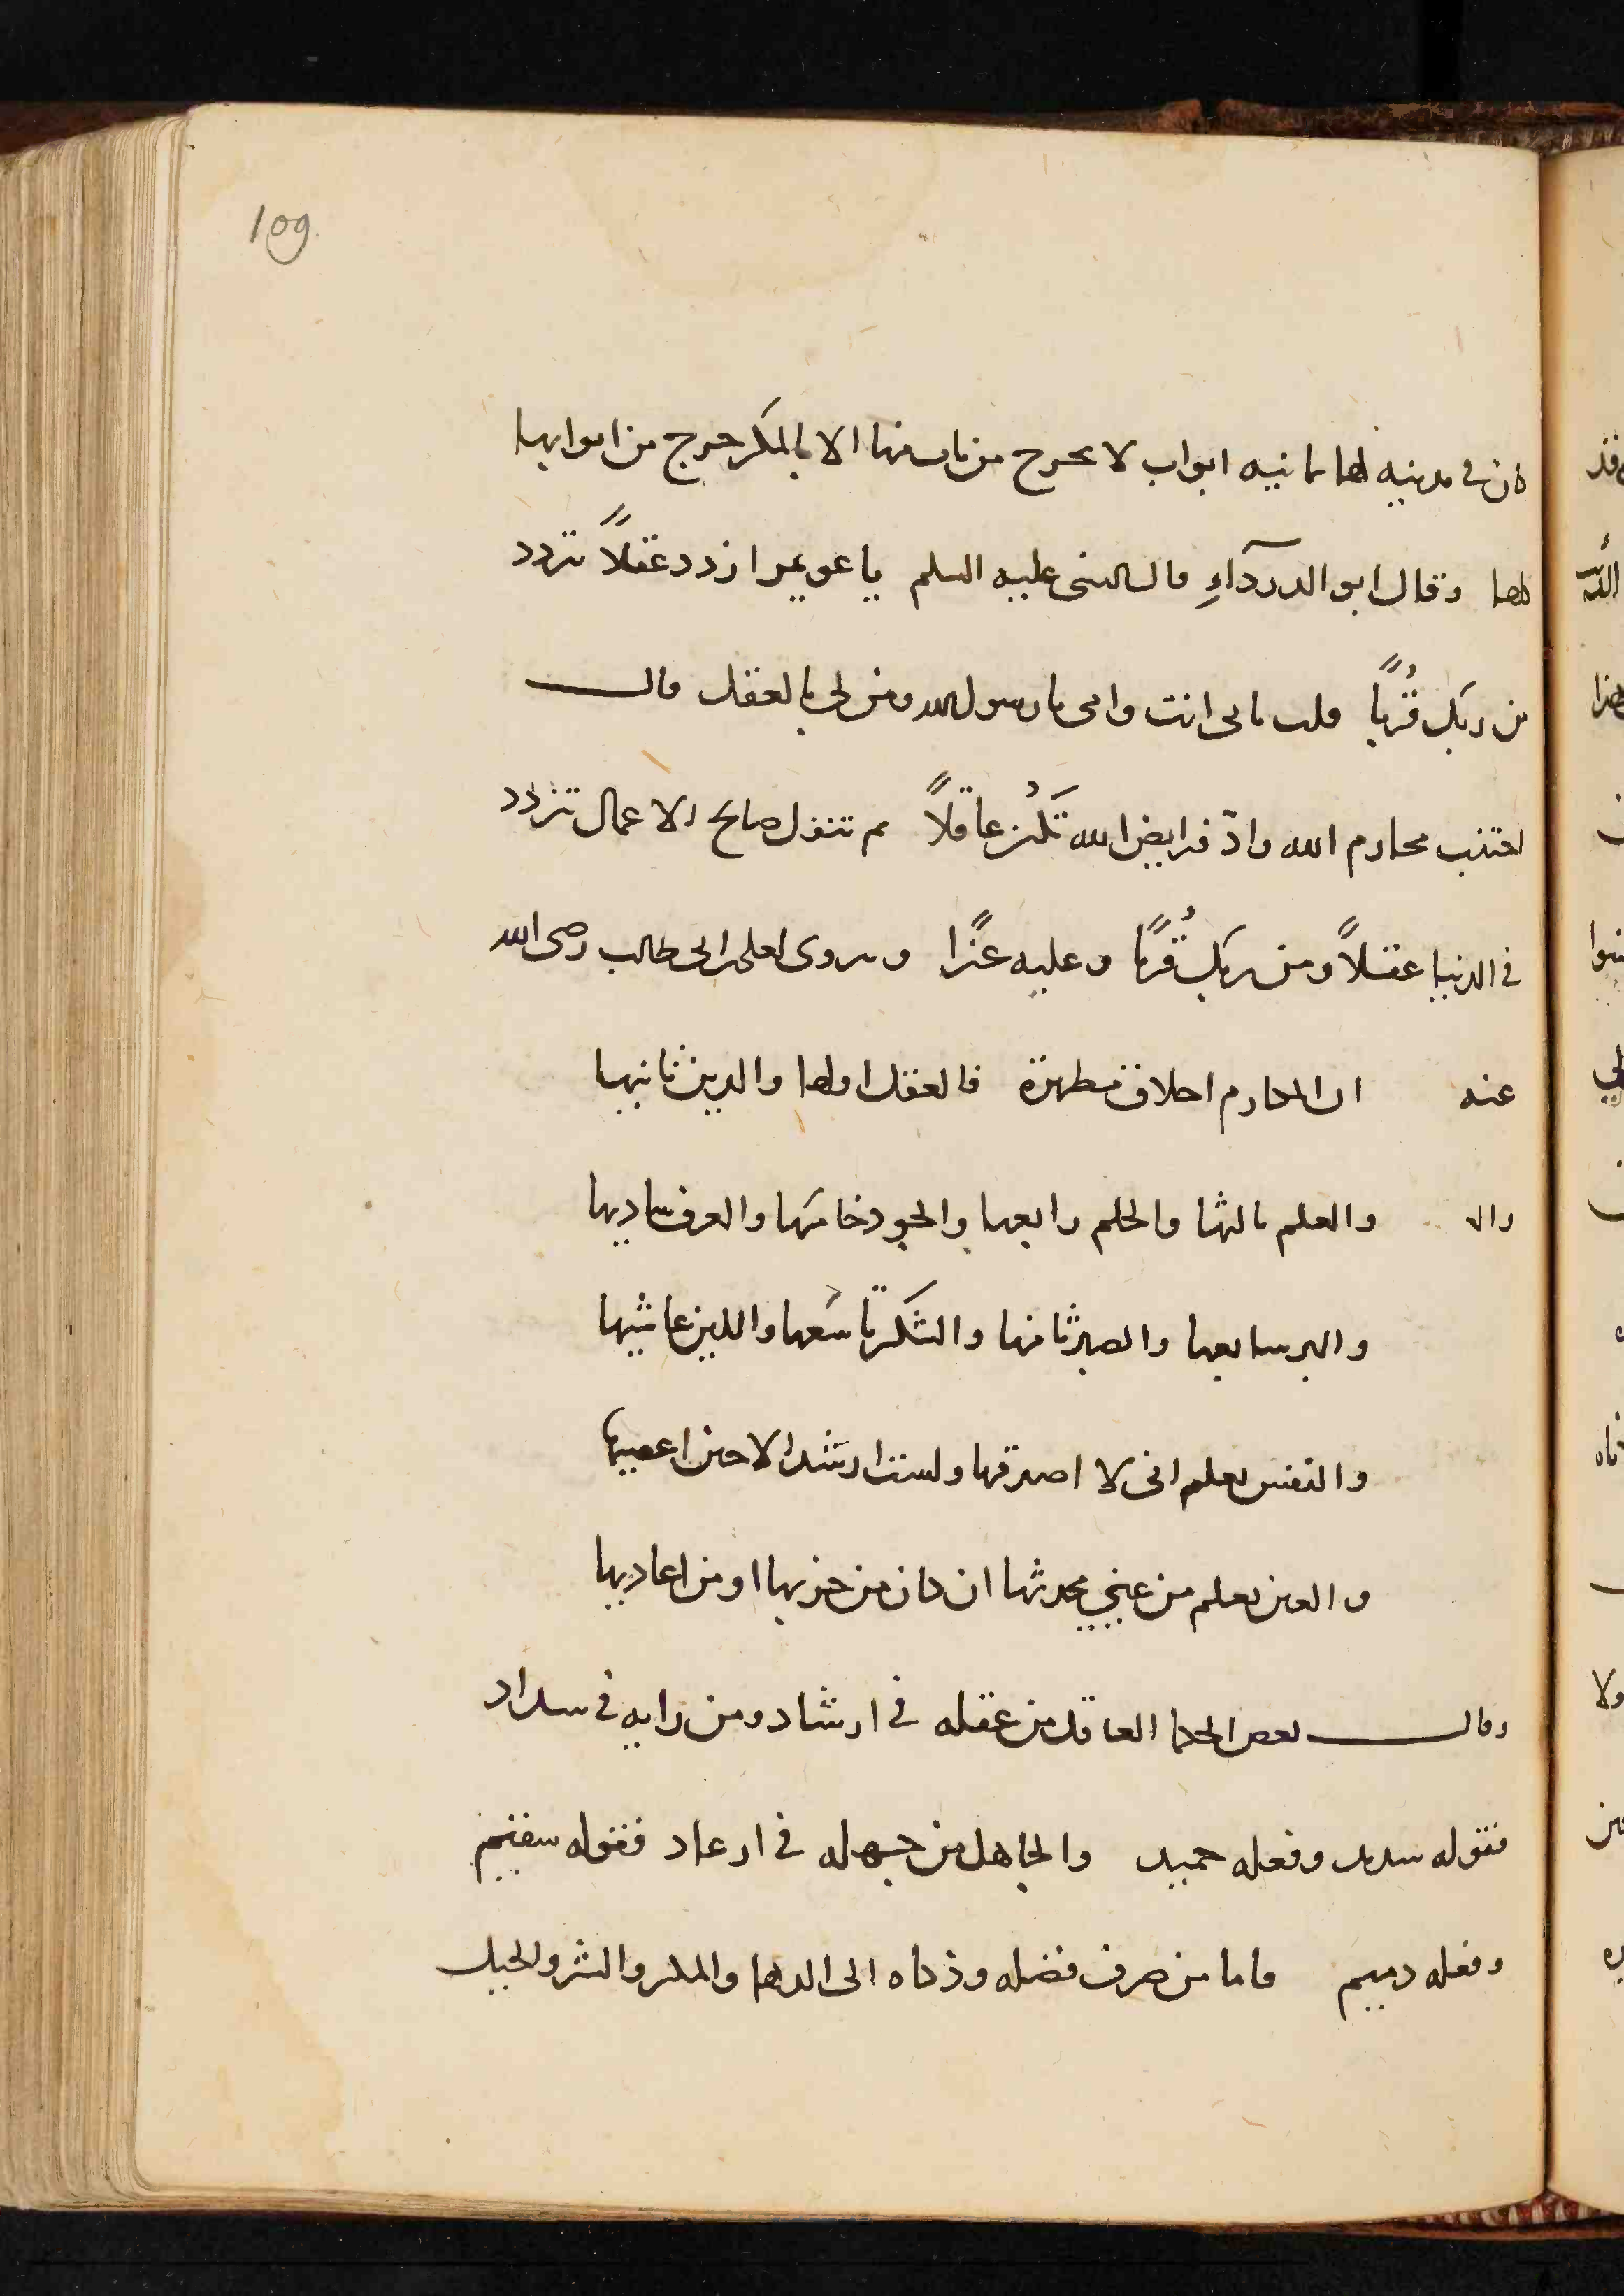 109
كان في مدينه لها ثمانيه ابواب لا يخرج من باب منها الا بالمكر خرج من ابوابها
كلها وقال ابو الدرداءِ قال النبى عليه السلم يا عويمر ازدد عقلاً تزدد
من ربك قُربًا قلت بابى انت وامى يا رسول الله ومن لي بالعقل قال
اجتنب محارم الله وادّ فرايض الله تَكُن عاقلاً ثم تنفل صالح الاعمال تزدد
في الدنيا عقلاً ومن ربك قُربًا وعليه عزًا ويروى لعلى بن ابى طالب رضى الله
عنه ان المكارم اخلاق مطهرة فالعقل اولها والدين ثانيها
والعلم ثالثها والحلم رابعها والجود خامسها والعرف ساديها
والبر سابعها والصبر ثامنها والشكر تاسعها واللين عاشيها
والنفس تعلم انى لا اصدقها ولست ارشد الا حين اعصيها
والعين تعلم من عيني محدثها ان كان من حزبها او من اعاديها
وقال بعض الحكما العاقل من عقله في ارشاد ومن رايه في سداد
فقوله سديد وفعله حميد والجاهل من جهله في ارعاد فقوله سقيم
وفعله دميم فاما من صرف فضله وذكاه الى الدها والمكر والشر والحيل